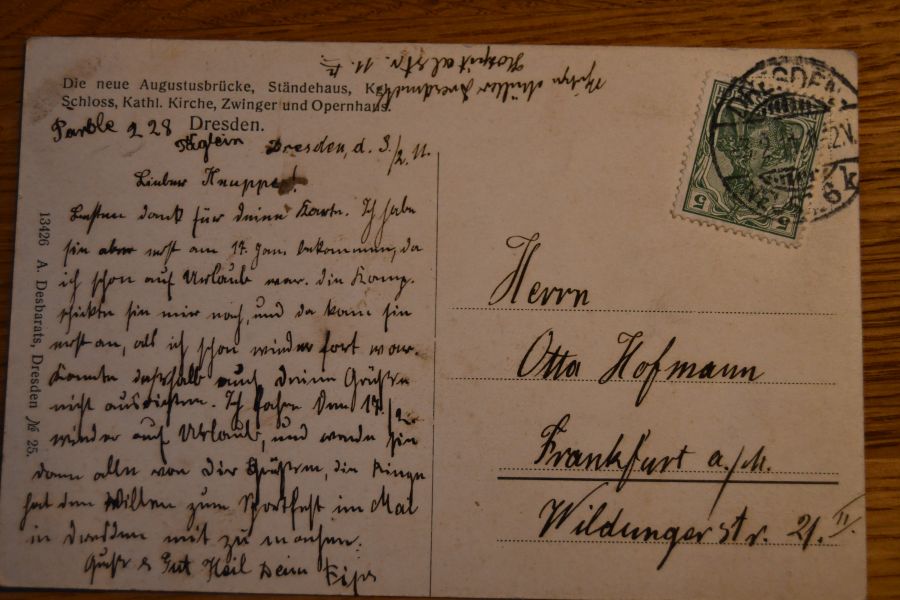 Die neue Augustusbrücke, Ständehaus, K
Schloss, Kathl. Kirche, Zwinger und Opernhaus.
Dresden.
Parole 228
Täglein Dresden, d. 3./2. 11.
Lieber Knuppe!
Besten dank für deine Karte. Ich habe
sie aber erst am 17. Jan. bekommen, da
ich schon auf Urlaub war. die Komp.
schickte sie mir nach, und da kam sie
erst an, als ich schon wieder fort war.
Konnte deshalb auch deine Grüße
nicht ausrichten. Ich fahre den 19./2.
wieder auf Urlaub, und werde sie
dann alle von Dir grüßen, die Riege
hat den Willen zum Sportfest im Mai
in Dresden mit zu machen.
Gruß & Gut Heil Dein
Hospitalstr. 11
13426 A. Desbarats, Dresden № 25.
DRESDEN
5
5
Herrn
Otto Hofmann
Frankfurt a./M.
Wildungerstr. 21. II.